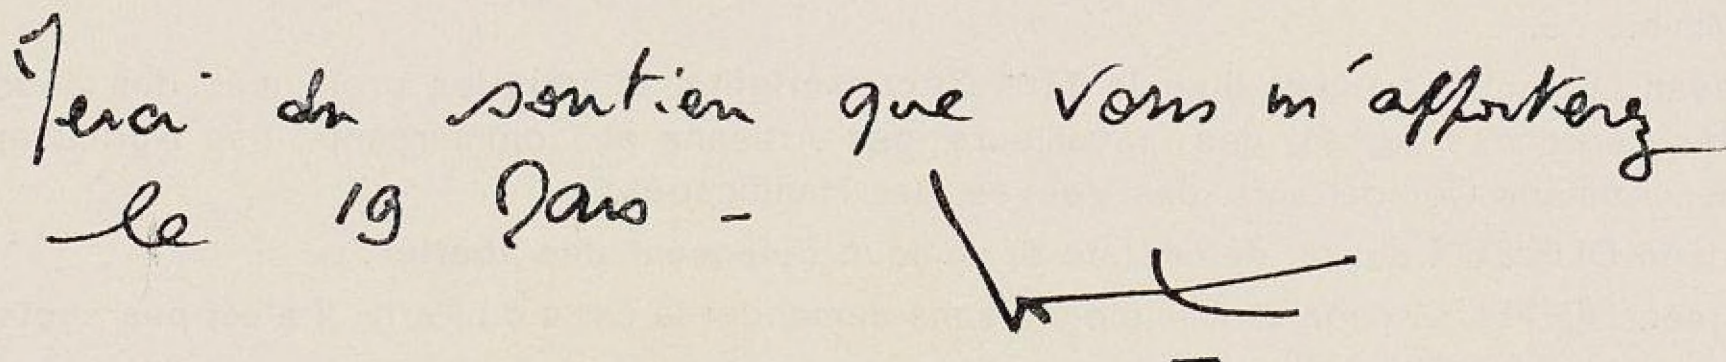 Merci du soutien que vous m'apporterez
le 19 Mars -